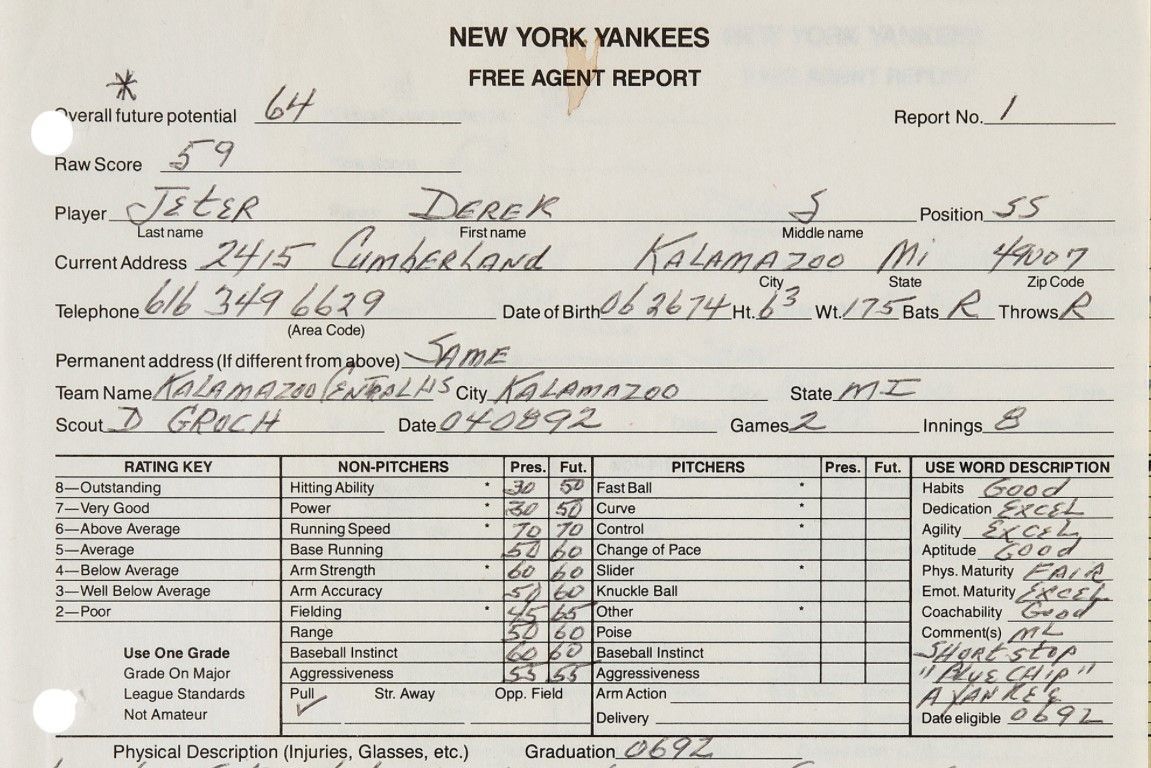 NEW YORK YANKEES
FREE AGENT REPORT
*
Overall future potential 64 Report No. 1
Raw Score 59
Player JETER DEREK S Position SS
Last name First name Middle name
Current Address 2415 CUMBERLAND KALAMAZOO Mi 49007
City State Zip Code
Telephone 616 349 6629 Date of Birth 06 26 74 Ht. 6 3 Wt. 175 Bats R Throws R
(Area Code)
Permanent address (If different from above) SAME
Team Name KALAMAZOO CENTRAL HS City KALAMAZOO State MI
Scout D GROCH Date 040892 Games 2 Innings 8
RATING KEY NON-PITCHERS Pres. Fut. PITCHERS Pres. Fut. USE WORD DESCRIPTION
8—Outstanding Hitting Ability * 30 50 Fast Ball * Habits Good
7—Very Good Power * 30 50 Curve * Dedication EXCEL
6—Above Average Running Speed * 70 70 Control * Agility EXCEL
5—Average Base Running 50 60 Change of Pace Aptitude Good
4—Below Average Arm Strength * 60 60 Slider * Phys. Maturity FAIR
3—Well Below Average Arm Accuracy 50 60 Knuckle Ball Emot. Maturity EXCEL
2—Poor Fielding * 45 65 Other * Coachability Good
Range 50 60 Poise Comment(s) ML
Use One Grade Baseball Instinct 60 60 Baseball Instinct SHORT STOP
Grade On Major Aggressiveness 55 55 Aggressiveness "BLUE CHIP"
League Standards Pull ✓ Str. Away Opp. Field Arm Action A YANKEE
Not Amateur Delivery Date eligible 0692
Physical Description (Injuries, Glasses, etc.) Graduation 0692